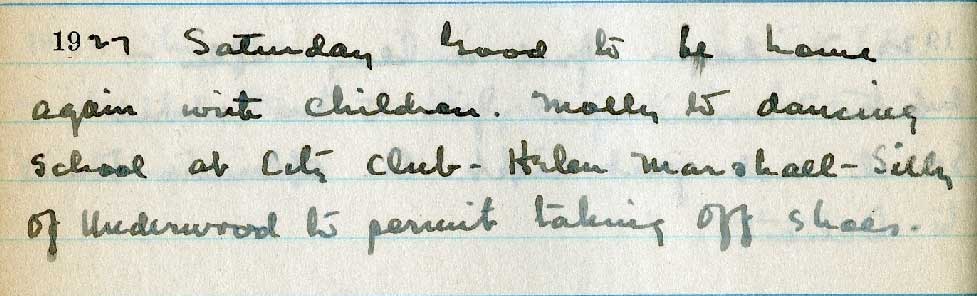 1927 Saturday Good to be home
again with children. Molly to dancing
School at City Club - Helen Marshall - Silly
of Underwood to permit taking off shoes.